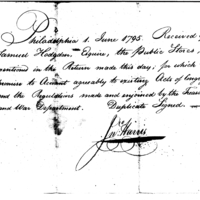 Philadelphia 1. June 1795. Received of
Samuel Hodgdon, Esquire, the Public Stores,
mentioned in the Return made this day; for which I
promise to Account agreably to existing Acts of Congress
and the Regulations made and enjoined by the Treasury
and War Department. Duplicate Signed.
Jno Harris